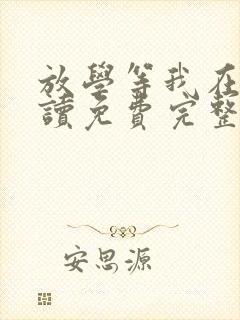 放學等我在
讀免費完整
安思源